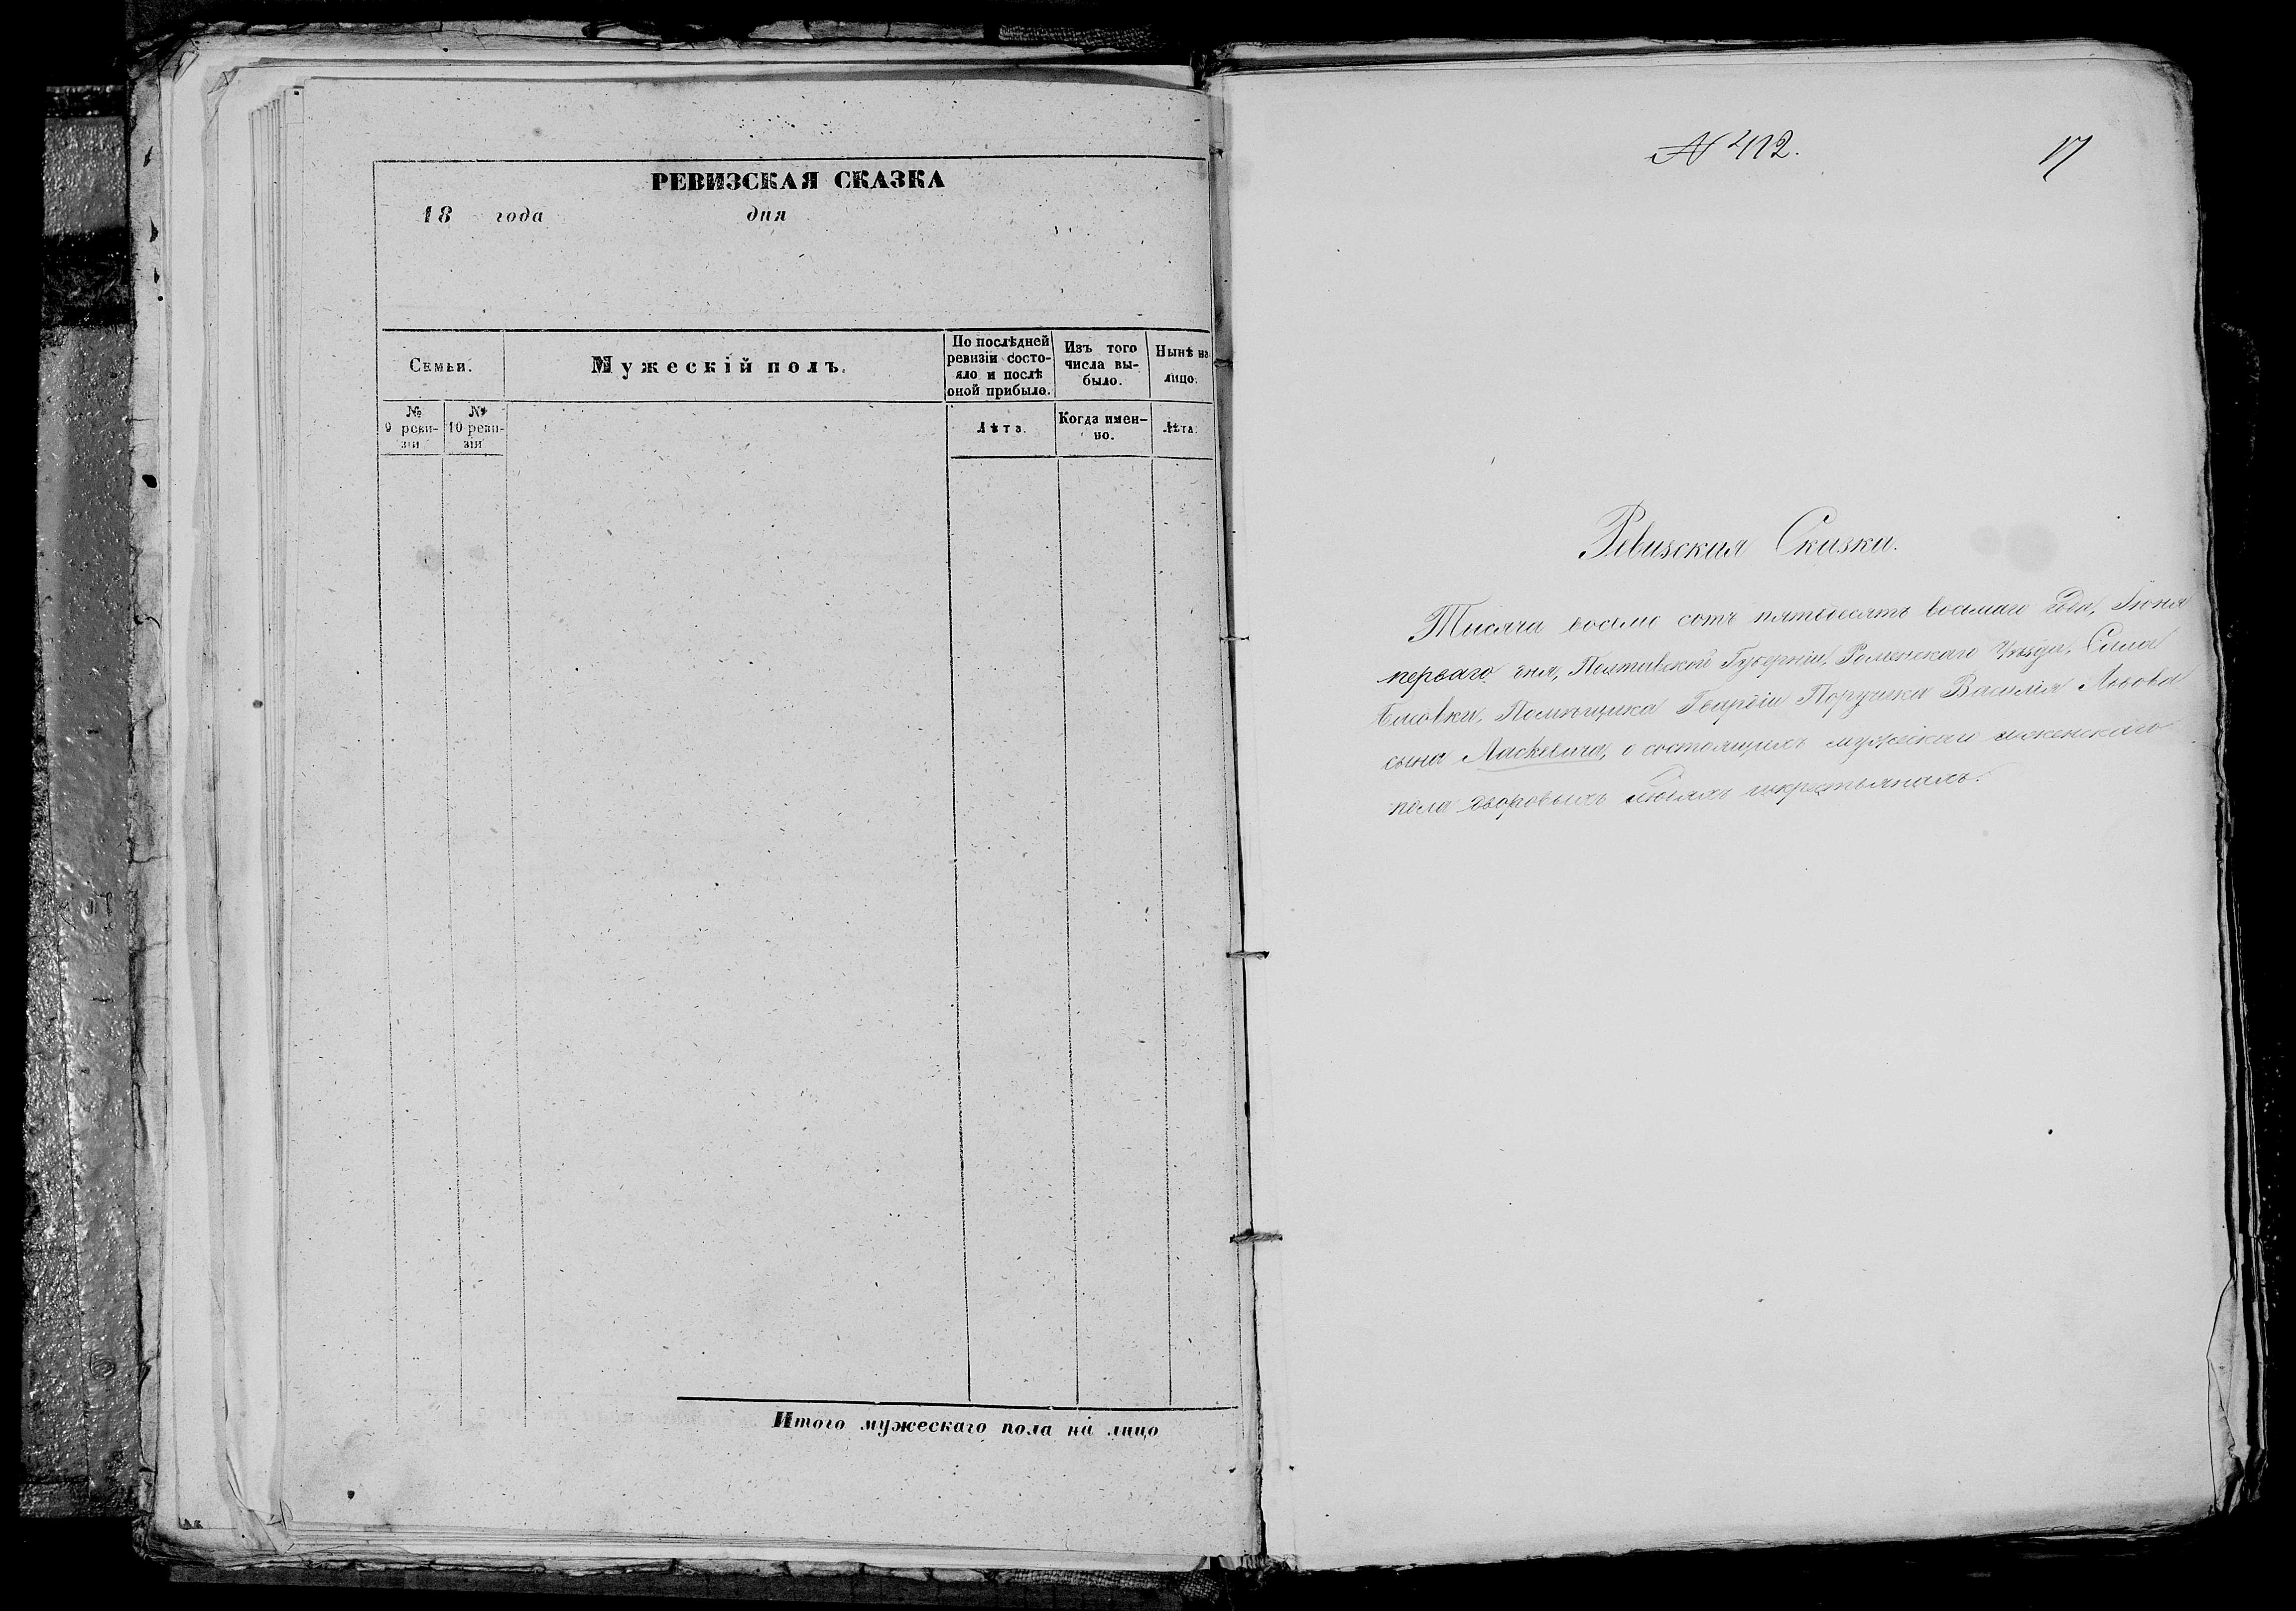 РЕВИЗСКАЯ СКАЗКА
18 года дня
Семьи.
Мужескій полъ.
По послѣдней ревизіи состояло и послѣ оной прибыло.
Изъ того числа выбыло.
Нынѣ на лицо.
№ 9 ревизіи
№ 10 ревизіи
Лѣта.
Когда именно.
Лѣта.
Итого мужескаго пола на лицо
№ 412.
17
Ревизская Сказка.
Тысяча восемь сотъ пятьдесятъ восьмаго года, Іюня
перваго дня, Полтавской Губерніи, Роменскаго Уѣзда, Села
Басовки, Помѣщика Гвардіи Поручика Василія Львова
сына Ласкевича, о состоящихъ мужескаго и женскаго
пола дворовыхъ людяхъ и крестьянахъ.